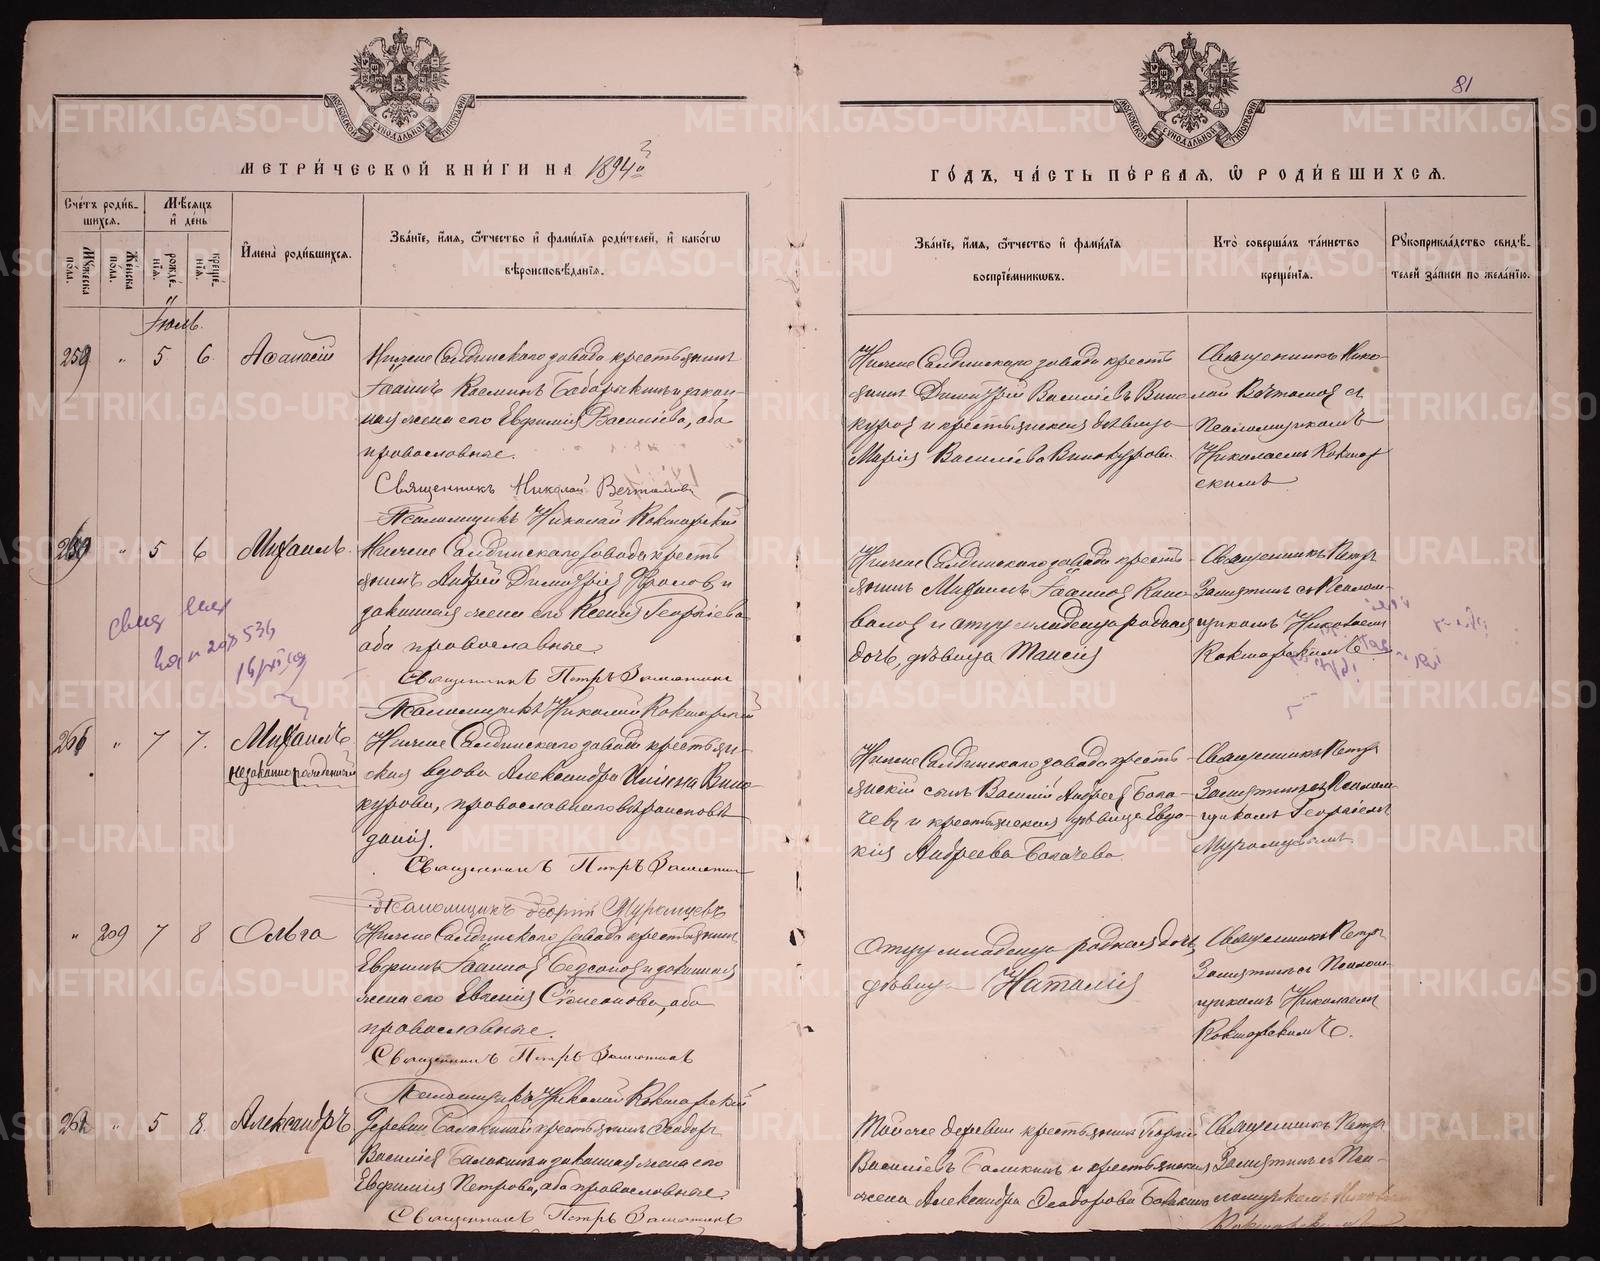 81
МОСКОВСКОЙ СѴНОДАЛЬНОЙ ТИПОГРАФІИ
МОСКОВСКОЙ СѴНОДАЛЬНОЙ ТИПОГРАФІИ
МЕТРИ́ЧЕСКОЙ КНИ́ГИ НА 1894й
ГО́ДЪ, ЧА́СТЬ ПЕ́РВАЯ, Ѡ РОДИ́ВШИХСЯ.
Сче́тъ роди́в-
шихся.
Му́жеска по́ла.
Же́нска по́ла.
Мѣ́сяцъ
и де́нь
рожде́-
нія.
креще́-
нія.
Имена̀ роди́вшихся.
Зва́ніе, и́мя, ѻ́тчество и фами́лія роди́телей, и како́гѡ
вѣроисповѣ́данія.
Зва́ніе, и́мя, ѻ́тчество и фами́лія
воспріе́мниковъ.
Кто̀ соверша́лъ та́инство
креще́нія.
Рꙋкоприкла́дство свидѣ́-
телей за́писи по жела́нію.
Іюль.
259 " 5 6. Аѳанасій
Нижне Салдинскаго завода крестьянинъ
Іоаннъ Косминъ Бабарыкинъ и закон-
ная жена его Евфимія Васильева, оба
православные.
Священникъ Николай
Псаломщикъ Николай Кокшарскій
Нижне Салдинскаго завода кресть
янинъ Димитрій Васильевъ Вино
куровъ и крестьянская дѣвица
Марія Васильева Винокурова
Священникъ Нико-
лай съ
Псаломщикомъ
Николаемъ Кокшар
скимъ
" 5 6 Михаилъ.
Нижне Салдинскаго завода кресть
янинъ Андрей Димитріевъ Фроловъ и
законная жена его Ксенія Георгіева
оба православные
Священникъ Петръ Замятинъ
Псаломщикъ Николай Кокшарскій
Нижне Салдинскаго завода кресть-
янинъ Михаилъ Іоанновъ Коно
валовъ и отцу младенца родная
дочь, дѣвица Таисія
Священникъ Петръ
Замятинъ съ Псалом-
щикомъ Николаемъ
Кокшарскимъ
" 7 7. Михаилъ
незаконнорожденный
Нижне Салдинскаго завода крестьян-
ская вдова Александра Вино-
курова, православнаго вѣроисповѣ
данія.
Священникъ Петръ Замятинъ
Псаломщикъ Георгій Муромцевъ
Нижне Салдинскаго завода кресть-
янскій сынъ Василій Андреевъ Бала-
чевъ и крестьянская дѣвица Евдо-
кія Андреева Балачева
Священникъ Петръ
Замятинъ съ Псалом-
щикомъ Георгіемъ
Муромцевымъ
" 209 7 8 Ольга
Нижне Салдинскаго завода крестьянинъ
Евфимъ Іоанновъ Бедсоновъ и законная
жена его Евгенія Симеонова, оба
православные.
Священникъ Петръ Замятинъ
Псаломщикъ Николай Кокшарскій
Отцу младенца родная дочь,
дѣвица Наталія
Священникъ Петръ
Замятинъ съ Псалом-
щикомъ Николаемъ
Кокшарскимъ.
262 " 5 8. Александръ
Деревни Балакиной крестьянинъ Ѳеодоръ
Васильевъ Балакинъ и законная жена его
Евфимія Петрова, оба православные.
Священникъ Петръ Замятинъ
Той же деревни крестьянинъ Георгій
Васильевъ Балакинъ и крестьянская
жена Александра Ѳеодорова Балакина
Священникъ Петръ
Замятинъ съ Пса-
ломщикомъ Николаемъ
Кокшарскимъ
METRIKI.GASO-URAL.RU